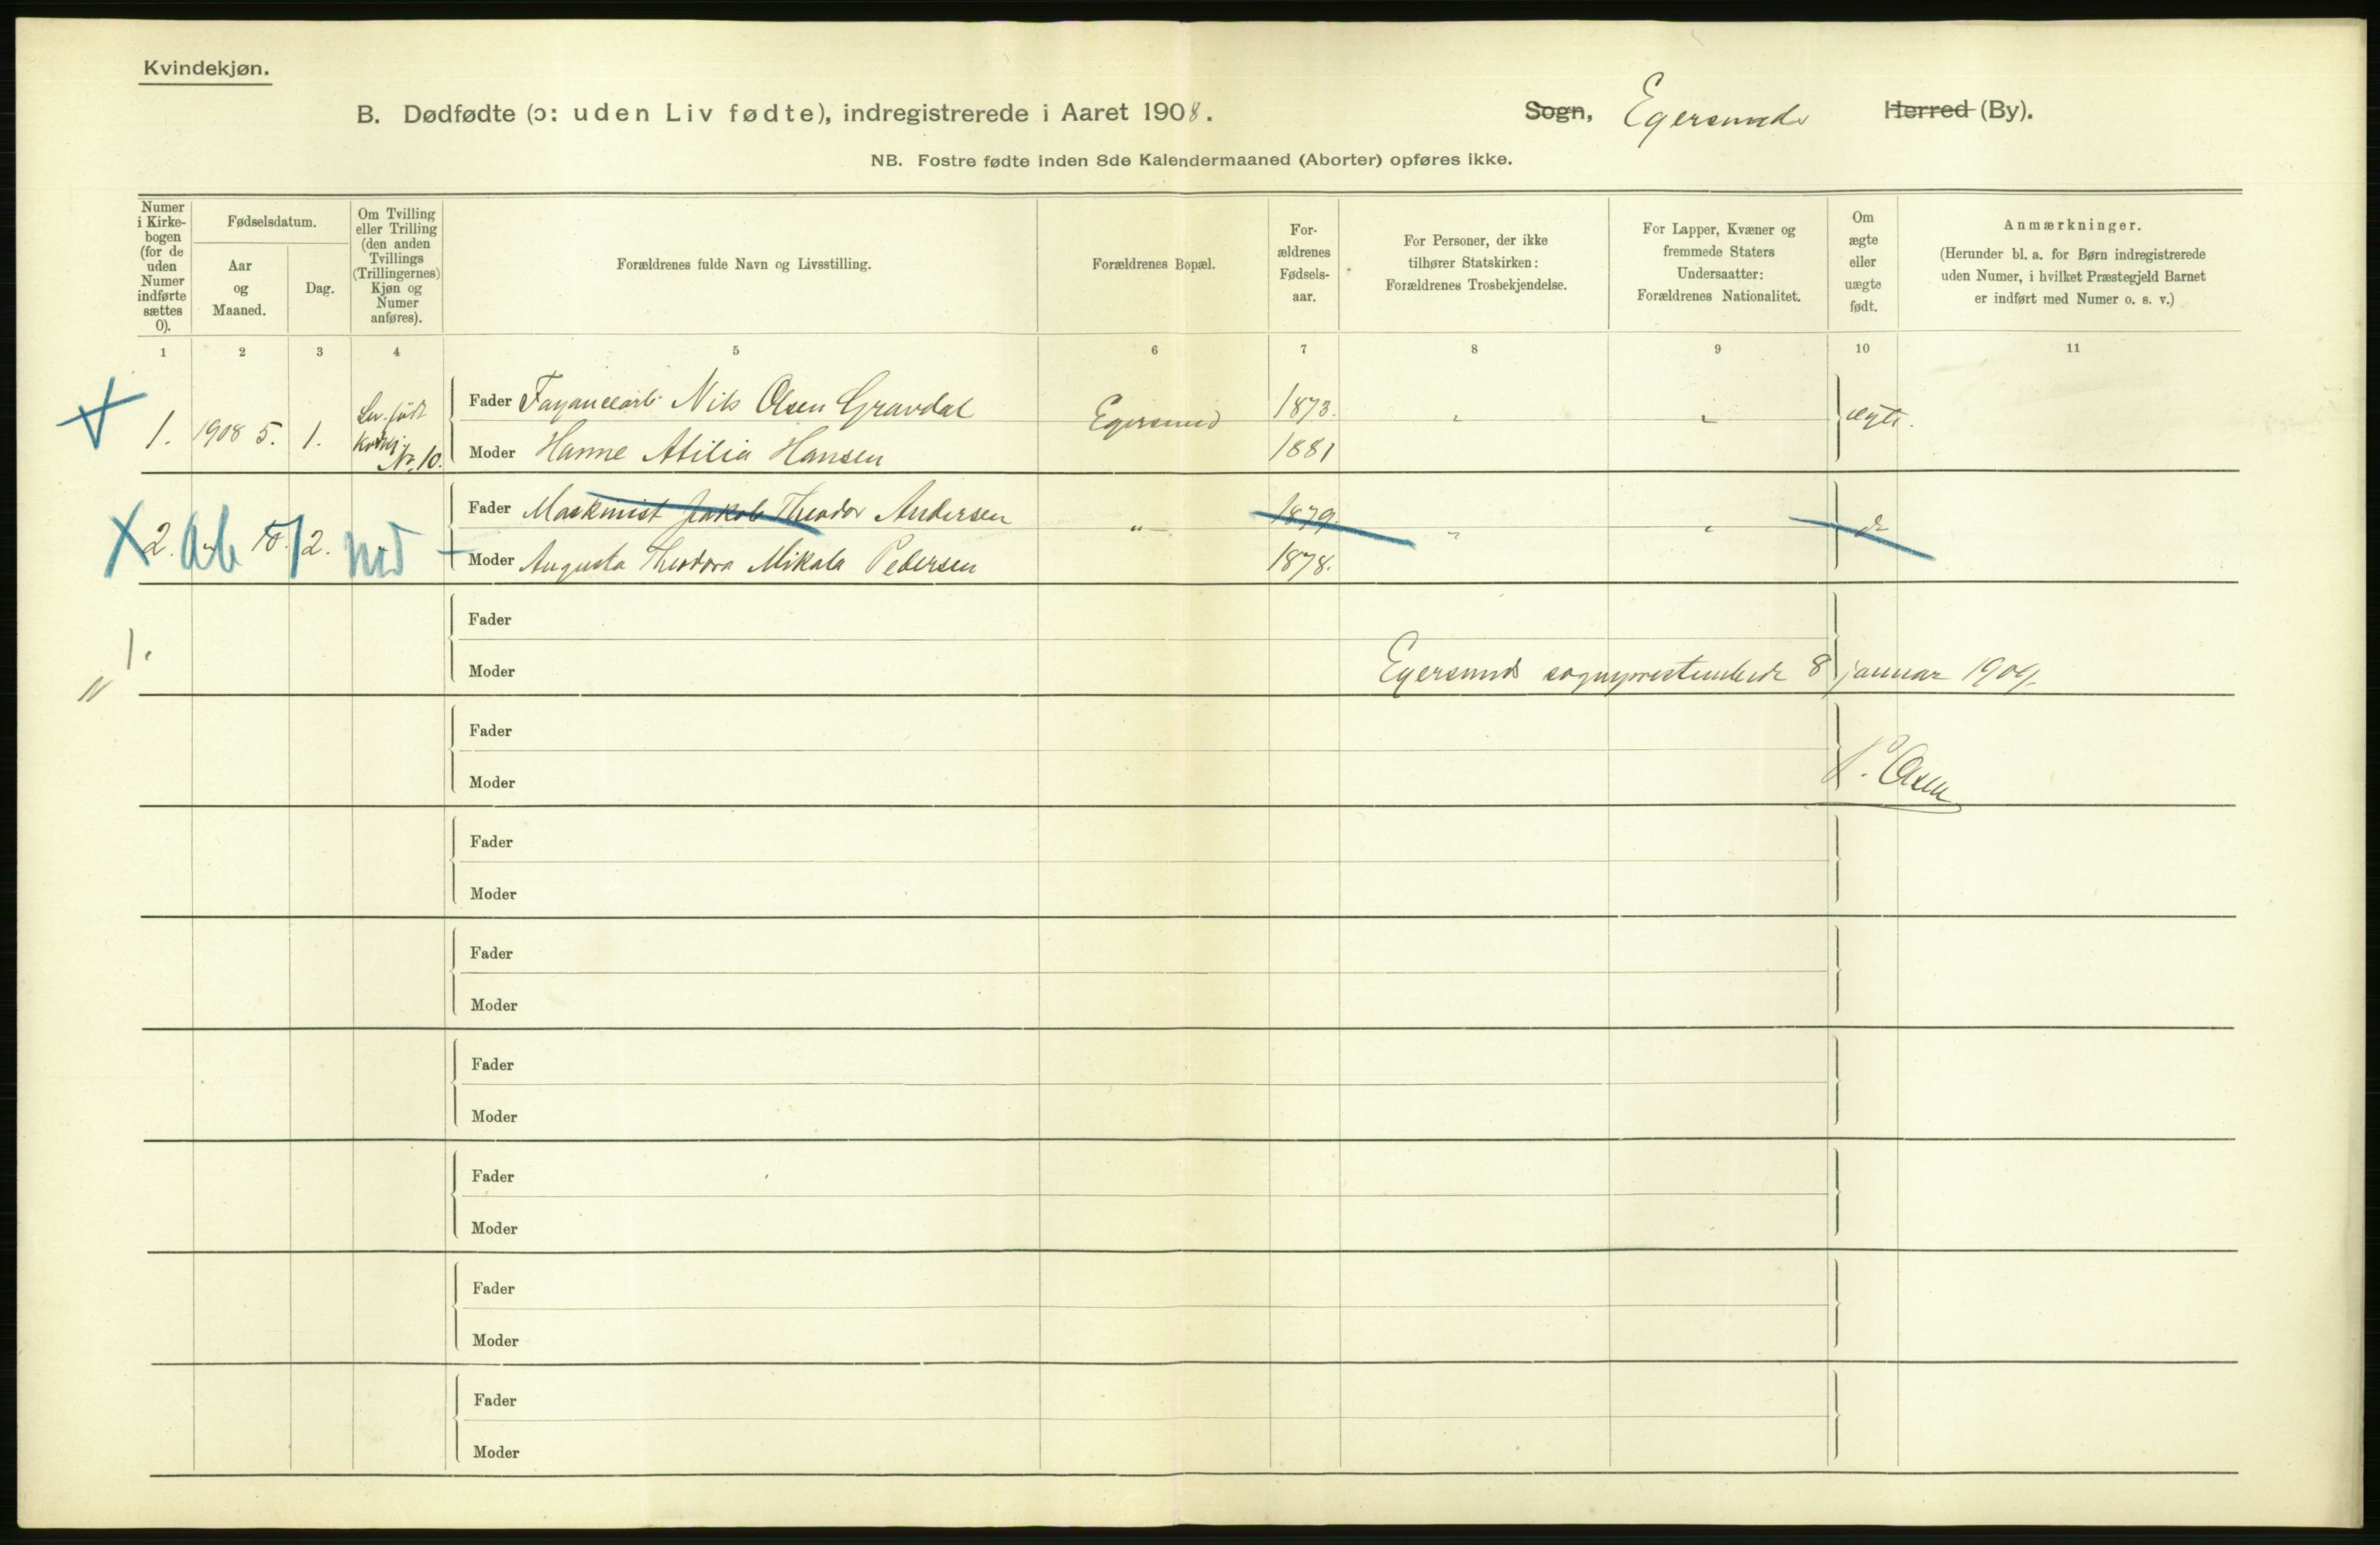 Kvindekjøn.
B. Dødfødte (ɔ: uden Liv fødte), indregistrerede i Aaret 1908. Sogn, Egersunds Herred (By).
NB. Fostre fødte inden 8de Kalendermaaned (Aborter) opføres ikke.
Numer i Kirkebogen (for de uden Numer indførte sættes 0).
Fødselsdatum.
Aar og Maaned.
Dag.
Om Tvilling eller Trilling (den anden Tvillings (Trillingernes) Kjøn og Numer anføres).
Forældrenes fulde Navn og Livsstilling.
Forældrenes Bopæl.
Forældrenes Fødselsaar.
For Personer, der ikke tilhører Statskirken: Forældrenes Trosbekjendelse.
For Lapper, Kvæner og fremmede Staters Undersaatter: Forældrenes Nationalitet.
Om ægte eller uægte født.
Anmærkninger.
(Herunder bl. a. for Børn indregistrerede uden Numer, i hvilket Præstegjeld Barnet er indført med Numer o. s. v.)
1 2 3 4 5 6 7 8 9 10 11
Fader Fayancearb. Nils Olsen Gravdal 1873. " "
1. 1908 5. 1. Lev. født Kvkj. Nr. 10. Egersund ægte.
Moder Hanne Atilia Hansen 1881
Fader Maskinist Jakob Theodor Andersen " 1879. " " do
2. 10. 12.
Moder Augusta Theodora Mikala Pedersen 1878.
Fader
1.
Moder Egersunds sogneprestembede 8 januar 1909.
"
Fader
Moder P. Olsen
Fader
Moder
Fader
Moder
Fader
Moder
Fader
Moder
Fader
Moder
Fader
Moder